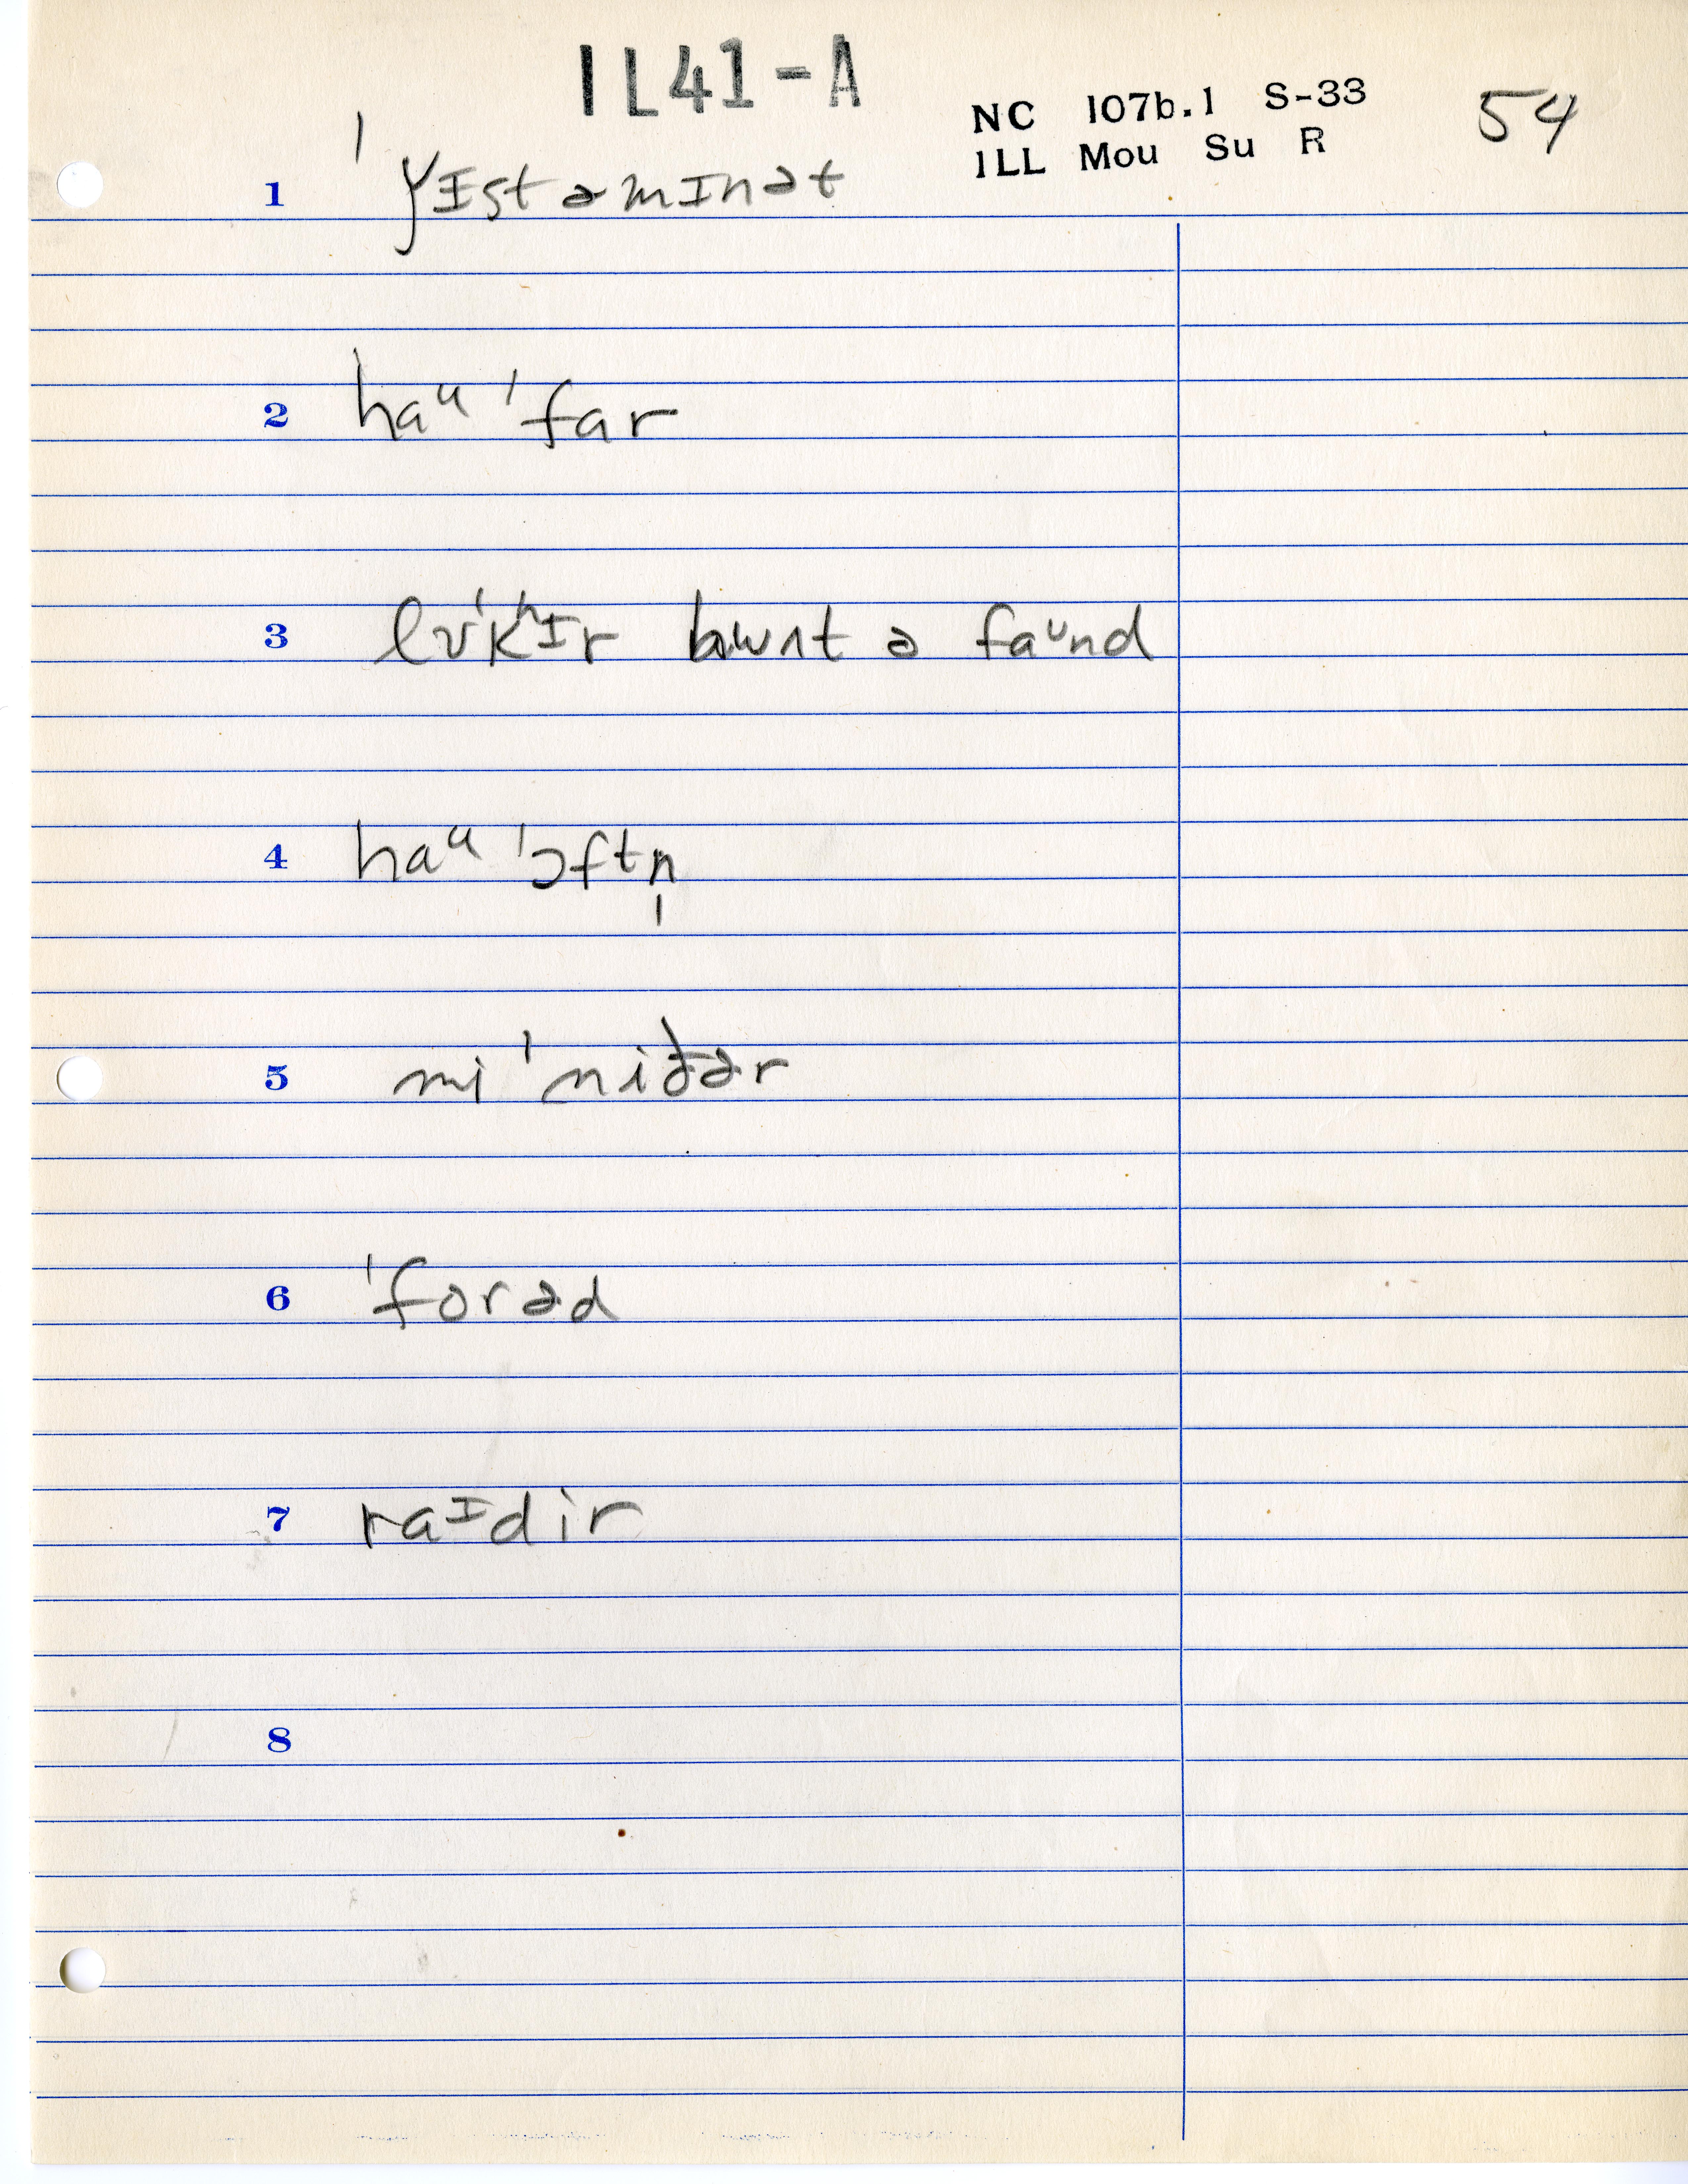 IL41-A
NC 107b.1 S-33 54
ILL Mou Su R
1 ˈyɪstəmɪnət
2 haᵘ ˈfar
3 lʊˈkʰɪr ə faᵘnd
4 haᵘ ˈɔftn̩
5 mi ˈniðər
6 ˈforəd
7 raᶦdir
8